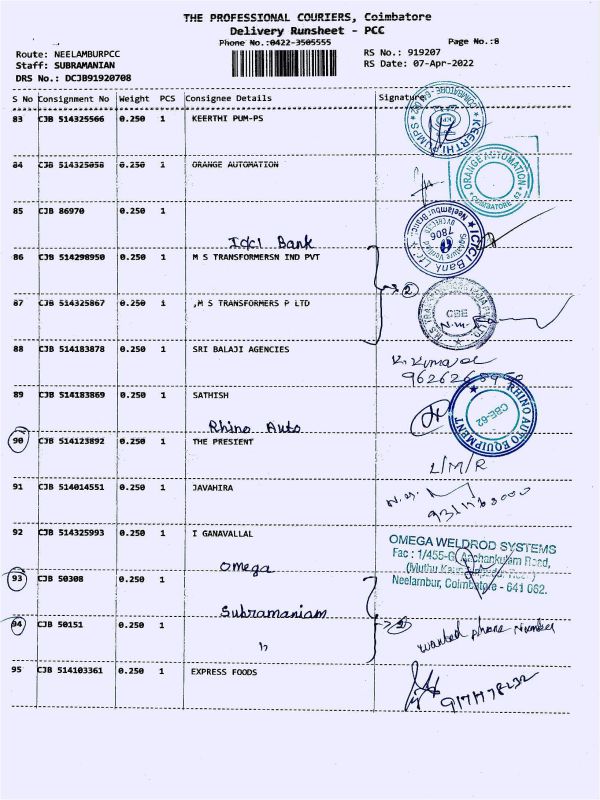 THE PROFESSIONAL COURIERS, Coimbatore
Delivery Runsheet - PCC
Phone No.:0422-3505555
Page No.:8
Route: NEELAMBURPCC
RS No.: 919207
Staff: SUBRAMANIAN
RS Date: 07-Apr-2022
DRS No.: DCJB91920708
S No Consignment No Weight PCS Consignee Details Signature
83 CJB 514325566 0.250 1 KEERTHI PUM-PS
KEERTHI PUMPS
84 CJB 514325058 0.250 1 ORANGE AUTOMATION
ORANGE AUTOMATION
COIMBATORE - 62
85 CJB 86970 0.250 1
Icici Bank
ICICI Bank Ltd
Neelambur Branch
Signature Verified
7806
86 CJB 514298950 0.250 1 M S TRANSFORMERSN IND PVT
2
87 CJB 514325867 0.250 1 ,M S TRANSFORMERS P LTD
CBE
88 CJB 514183878 0.250 1 SRI BALAJI AGENCIES
K. Kumar
89 CJB 514183869 0.250 1 SATHISH
Rhino Auto
RHINO AUTO EQUIPMENT
CBE-62
90 CJB 514123892 0.250 1 THE PRESIENT
L/M/R
91 CJB 514014551 0.250 1 JAVAHIRA
92 CJB 514325993 0.250 1 I GANAVALLAL
Omega
OMEGA WELDROD SYSTEMS
Fac : 1/455-G, Aachankulam Road,
Neelambur, Coimbatore - 641 062.
93 CJB 50308 0.250 1
Subramaniam
94 CJB 50151 0.250 1
"
wanted phone Number
95 CJB 514103361 0.250 1 EXPRESS FOODS